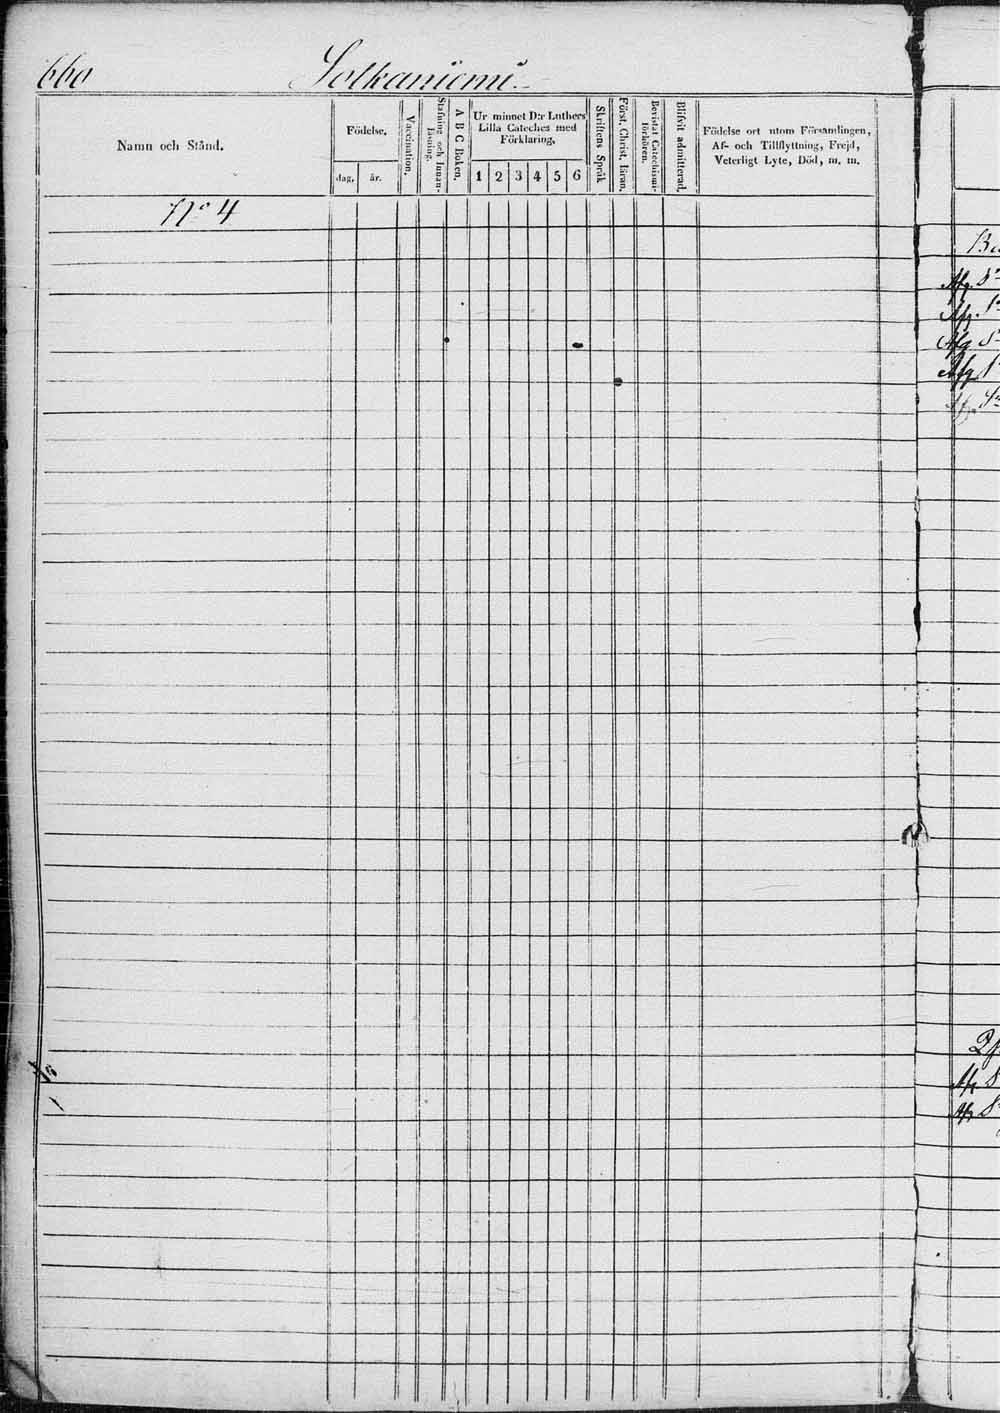 660 Solkaniemi.
Namn och Stånd.
Födelse.
dag. år.
Vaccination.
Stafning och Innan-
läsning.
A B C Boken.
Ur minnet D:r Luthers
Lilla Cateches med
Förklaring.
1 2 3 4 5 6
Skriftens Språk
Först. Christ. läran.
Bevistat Catechismi-
förhören.
Blifvit admitterad.
Födelse ort utom Församlingen,
Af- och Tillflyttning, Frejd,
Veterligt Lyte, Död, m. m.
No 4